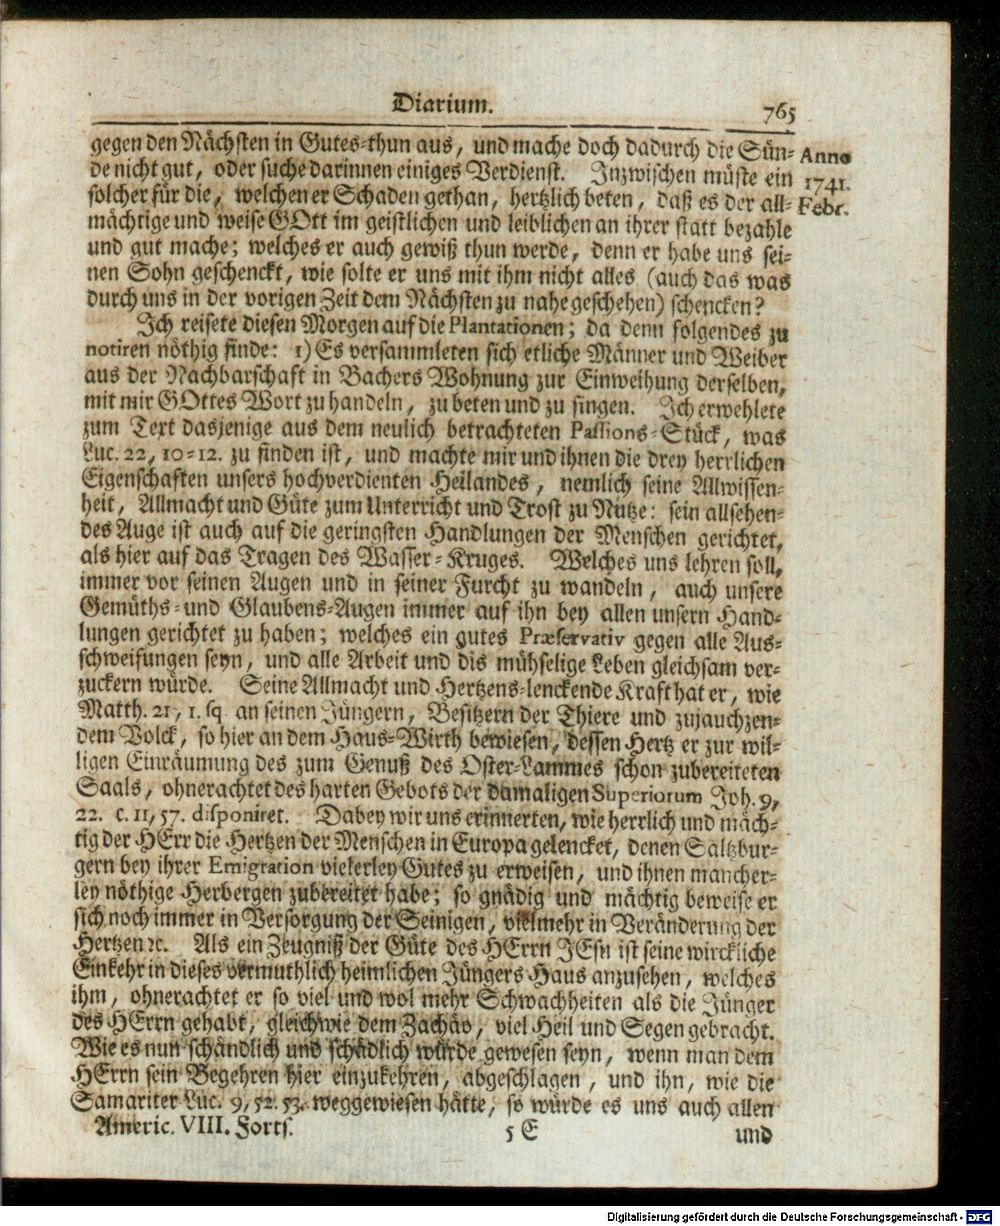 Diarium.
765
gegen den Nächsten in Gutes-thun aus, und mache doch dadurch die Sün-
Anno
de nicht gut, oder suche darinnen einiges Verdienst. Inzwischen müste ein
1741.
solcher für die, welchen er Schaden gethan, hertzlich beten, daß es der all-
Febr.
mächtige und weise GOtt im geistlichen und leiblichen an ihrer statt bezahle
und gut mache; welches er auch gewiß thun werde, denn er habe uns sei-
nen Sohn geschenckt, wie solte er uns mit ihm nicht alles (auch das was
durch uns in der vorigen Zeit dem Nächsten zu nahe geschehen) schencken?
Ich reisete diesen Morgen auf die Plantationen; da denn folgendes zu
notiren nöthig finde: 1) Es versammleten sich etliche Männer und Weiber
aus der Nachbarschaft in Bachers Wohnung zur Einweihung derselben,
mit mir GOttes Wort zu handeln, zu beten und zu singen. Ich erwehlete
zum Text dasjenige aus dem neulich betrachteten Passions-Stück, was
Luc. 22, 10-12. zu finden ist, und machte mir und ihnen die drey herrlichen
Eigenschaften unsers hochverdienten Heilandes, nemlich seine Allwissen-
heit, Allmacht und Güte zum Unterricht und Trost zu Nutze: sein allsehen-
des Auge ist auch auf die geringsten Handlungen der Menschen gerichtet,
als hier auf das Tragen des Wasser-Kruges. Welches uns lehren soll,
immer vor seinen Augen und in seiner Furcht zu wandeln, auch unsere
Gemüths-und Glaubens-Augen immer auf ihn bey allen unsern Hand-
lungen gerichtet zu haben; welches ein gutes Præservativ gegen alle Aus-
schweifungen seyn, und alle Arbeit und dis mühselige Leben gleichsam ver-
zuckern würde. Seine Allmacht und Hertzens-lenckende Kraft hat er, wie
Matth. 21, 1. sq. an seinen Jüngern, Besitzern der Thiere und zujauchzen-
dem Volck, so hier an dem Haus-Wirth bewiesen, dessen Hertz er zur wil-
ligen Einräumung des zum Genuß des Oster-Lammes schon zubereiteten
Saals, ohnerachtet des harten Gebots der damaligen Superiorum Joh. 9,
22. c. 11, 57. disponiret. Dabey wir uns erinnerten, wie herrlich und mäch-
tig der HErr die Hertzen der Menschen in Europa gelencket, denen Saltzbur-
gern bey ihrer Emigration vielerley Gutes zu erweisen, und ihnen mancher-
ley nöthige Herbergen zubereitet habe; so gnädig und mächtig beweise er
sich noch immer in Versorgung der Seinigen, vielmehr in Veränderung der
Hertzen ꝛc. Als ein Zeugniß der Güte des HErrn JEsu ist seine wirckliche
Einkehr in dieses vermuthlich heimlichen Jüngers Haus anzusehen, welches
ihm, ohnerachtet er so viel und wol mehr Schwachheiten als die Jünger
des HErrn gehabt, gleichwie dem Zachäo, viel Heil und Segen gebracht.
Wie es nun schändlich und schädlich würde gewesen seyn, wenn man dem
HErrn sein Begehren hier einzukehren, abgeschlagen, und ihn, wie die
Samariter Luc. 9, 52. 53. weggewiesen hätte, so würde es uns auch allen
Americ. VIII. Forts.
5 E
und
Digitalisierung gefördert durch die Deutsche Forschungsgemeinschaft - DFG